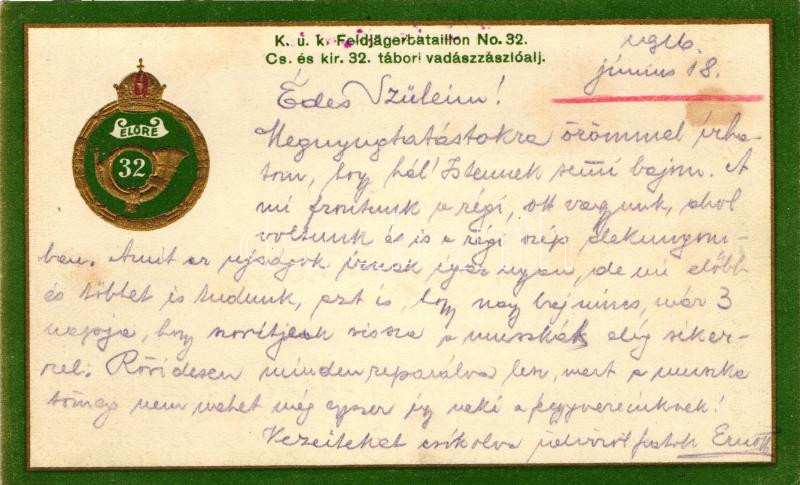 K. u. k. Feldjägerbataillon No. 32.
Cs. és kir. 32. tábori vadászzászlóalj.
1916.
június 18.
ELŐRE
32
Édes Szüleim!
Megnyugtatástokra örömmel írha-
tom, hogy hál' Istennek semmi bajom. A
mi frontunk a régi, ott vagyunk, ahol
voltunk és is a régi szép
ban. Amit az ujságok írnak igaz ugyan, de mi előbb
és többet is tudunk, azt is, hogy nagy baj nincs, már 3
napja, hogy szorítjuk vissza a muszkát elég siker-
rel. Rövidesen minden reparálva lesz, mert a muszka
tömeg nem mehet még egyszer így neki a fegyvereinknek!
Kezeiteket csókolva üdvözöl fiatok Ernő